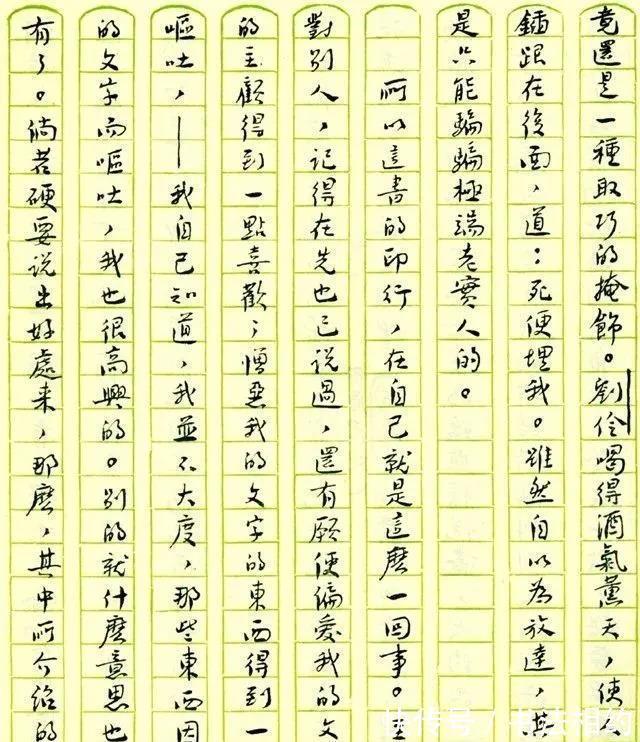 竟還是一種取巧的掩飾。劉伶喝得酒氣薰天，使人
鍤跟在後面，道：死便埋我。雖然自以為放達，其
是只能騙騙極端老實人的。
所以這書的印行，在自己就是這麼一回事。至
對別人，記得在先也已說過，還有願使偏愛我的文
的主顧得到一點喜歡；憎惡我的文字的東西得到一
嘔吐，——我自己知道，我並不大度，那些東西因
的文字而嘔吐，我也很高興的。別的就什麼意思也
有了。倘若硬要說出好處來，那麼，其中所介紹的
快传号 / 书法相约